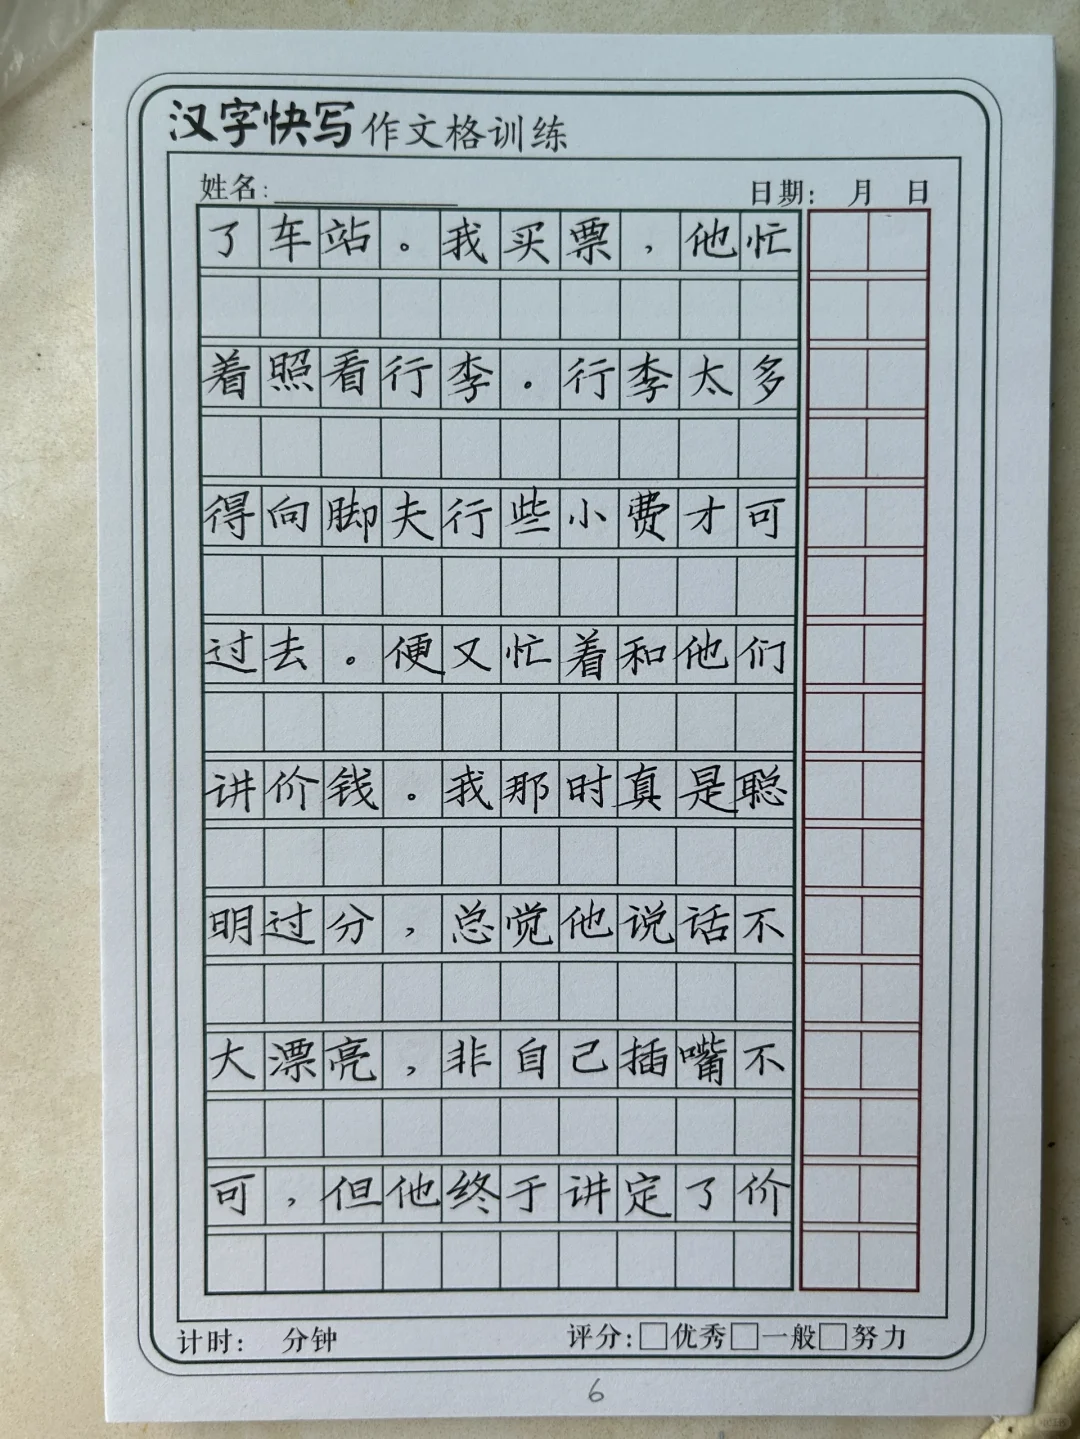 汉字快写作文格训练
姓名: 日期: 月 日
了车站。我买票,他忙
着照看行李。行李太多
得向脚夫行些小费才可
过去。便又忙着和他们
讲价钱。我那时真是聪
明过分,总觉他说话不
大漂亮,非自己插嘴不
可,但他终于讲定了价
计时: 分钟 评分:□优秀□一般□努力
6